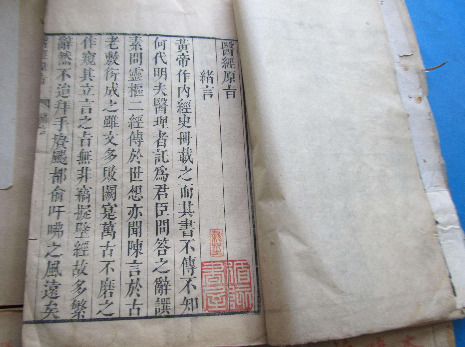 醫經原旨
緒言
黃帝作內經史冊載之而其書不傳不知
何代明夫醫理者託為君臣問答之辭譔
素問靈樞二經傳於世想亦聞陳言於古
老敷衍成之雖文多敗闕寔萬古不磨之
作窺其立言之旨無非竊擬壁經故多繁
辭然不迨拜手賡颺都俞吁咈之風遠矣
醫經原旨